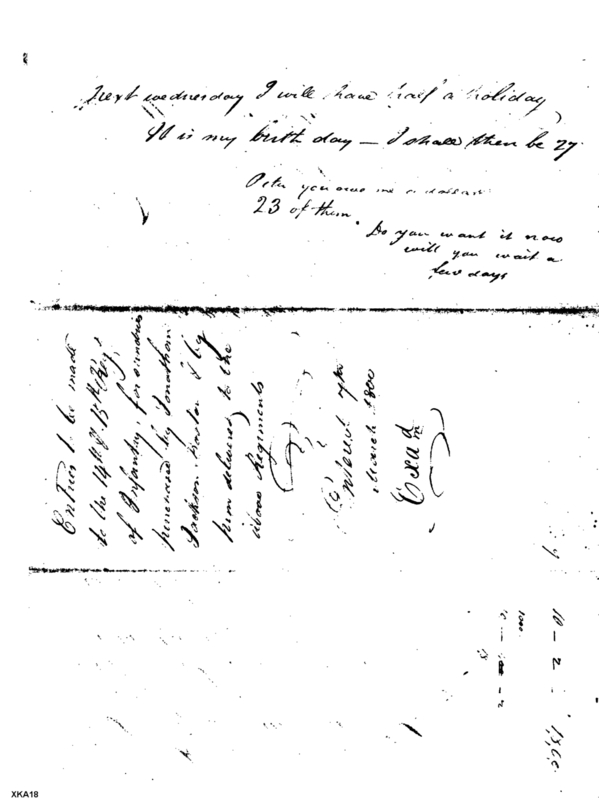 Next wednesday I will have half a holiday
It is my birth day — I shall then be 27.
Peter you owe me a dollar
23 of them.
Do you want it now
will you wait a
few days
Entries to be made
to the 14th & 15th Reg.
of Infantry, for sundries
purchased by Jonathan
Jackson, & by
him delivered to the
above Regiments
March 1800
Exad
10 - 2
XKA18